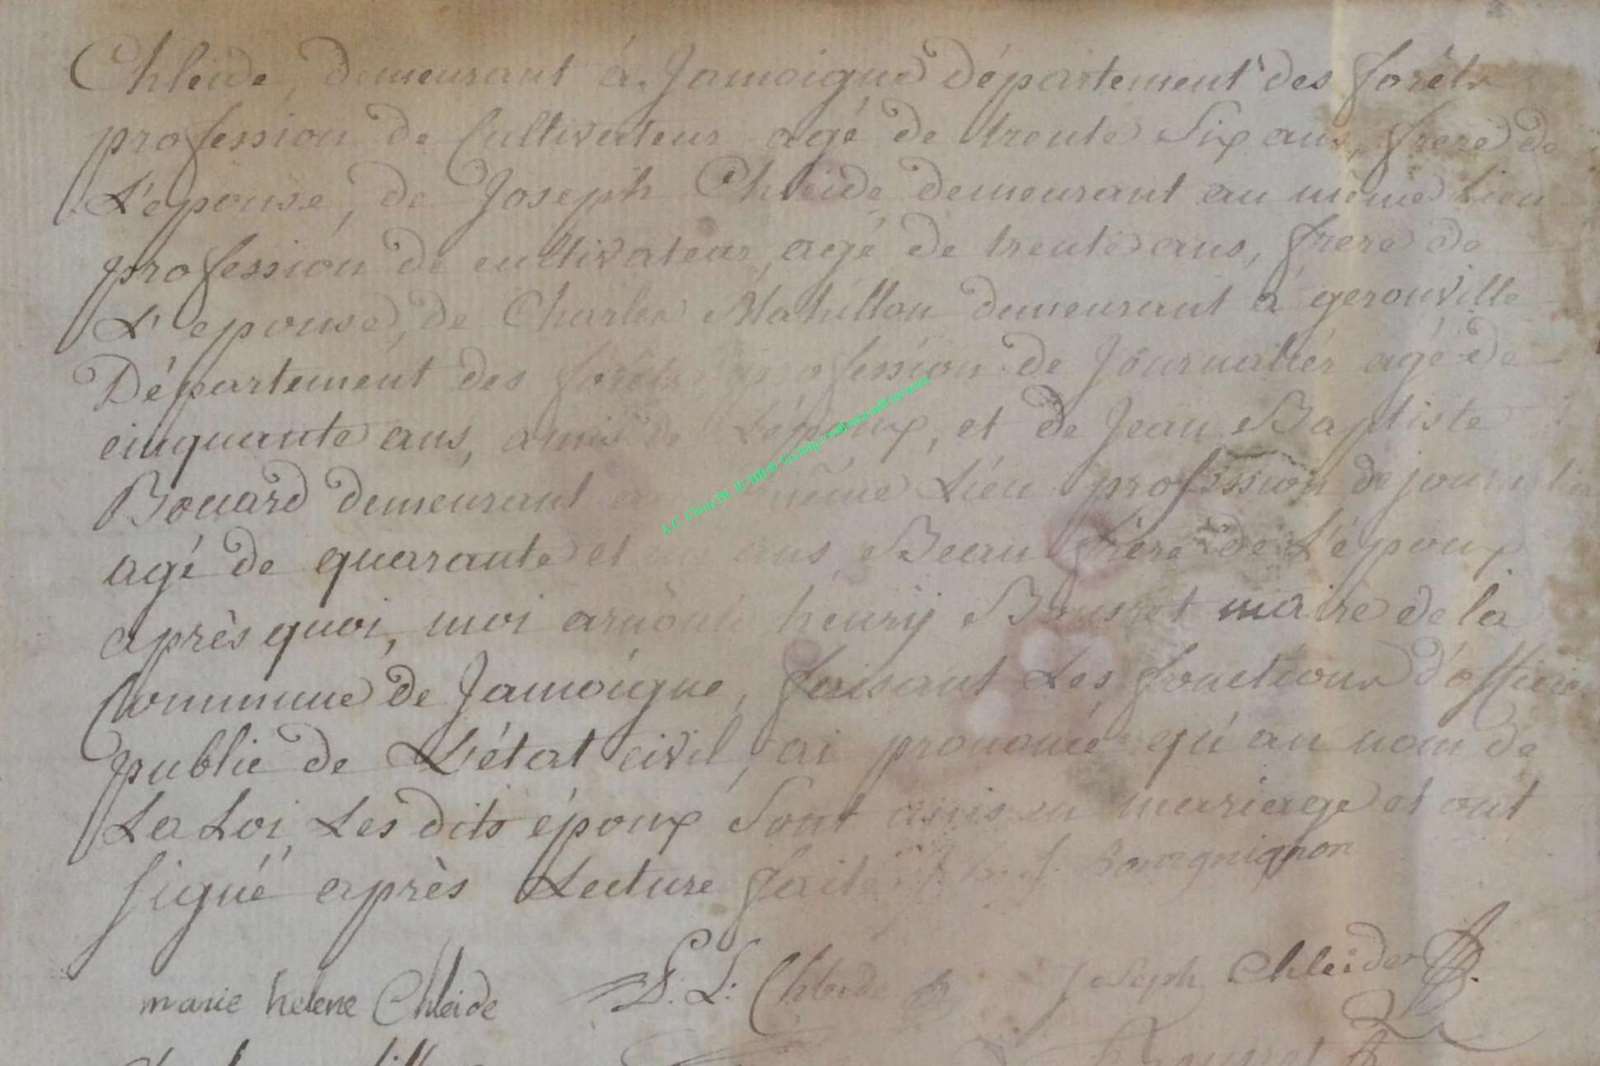 Chleide, demeurant à Jamoigne département des forêts
profession de Cultivateur agé de trente Six ans, frere de
L'épouse, de Joseph Chleide demeurant au même Lieu
profession de cultivateur, agé de trente ans, frere de
L'epouse, de Charles Mahillon demeurant à gerouville
Département des forêts profession de Journalier agé de
cinquante ans, amis de L'époux, et de Jean Baptiste
Bouard demeurant au même Lieu profession de journalier
agé de quarante et ans Beau frere de L'époux
après quoi, moi arnould henry maire de la
Commune de Jamoigne, faisant Les fonctions d'officier
public de L'état civil, ai prononcé qu'au nom de
La Loi, Les dits époux Sont unis en mariage et ont
signé après Lecture faite Bourgnignon
marie helene Chleide L: Chleide Joseph Chleider